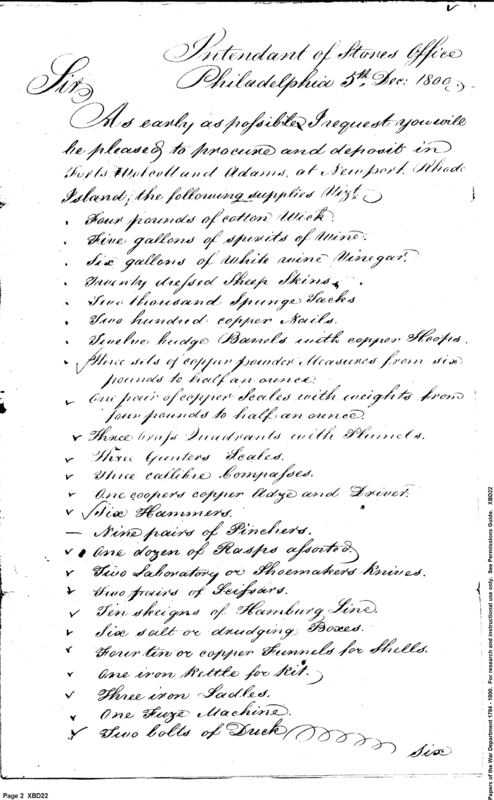 Intendant of Stores Office
Philadelphia 5th Dec: 1800.
Sir
As early as possible I request you will
be pleased to procure and deposit in
Forts Wolcott and Adams, at Newport, Rhode
Island, the following supplies Vizt.
Four pounds of cotton Wick.
Five gallons of spirits of Wine.
Six gallons of White wine Vinegar.
Twenty dressed Sheep Skins.
Two thousand Spunge Tacks
Two hundred copper Nails.
Twelve budge Barrels with copper Hoops.
Three sets of copper powder Measures from six
pounds to half an ounce.
One pair of copper Scales with weights from
four pounds to half an ounce.
Three brass Quadrants with Plumets.
Three Gunters Scales.
Three callibre Compasses.
One coopers copper Adze and Driver.
Six Hammers.
Nine pairs of Pinchers.
One dozen of Rasps assorted.
Two Laboratory or Shoemakers Knives.
Two pairs of Scissars.
Ten skeigns of Hamburg Line.
Six salt or drudging Boxes.
Four tin or copper Funnels for Shells.
One iron Kettle for Kit.
Three iron Ladles.
One Fuze Machine.
Two bolts of Duck
Six
Page 2 XBD22
Papers of the War Department 1784 - 1800. For research and instructional use only. See Permissions Guide. XBD22